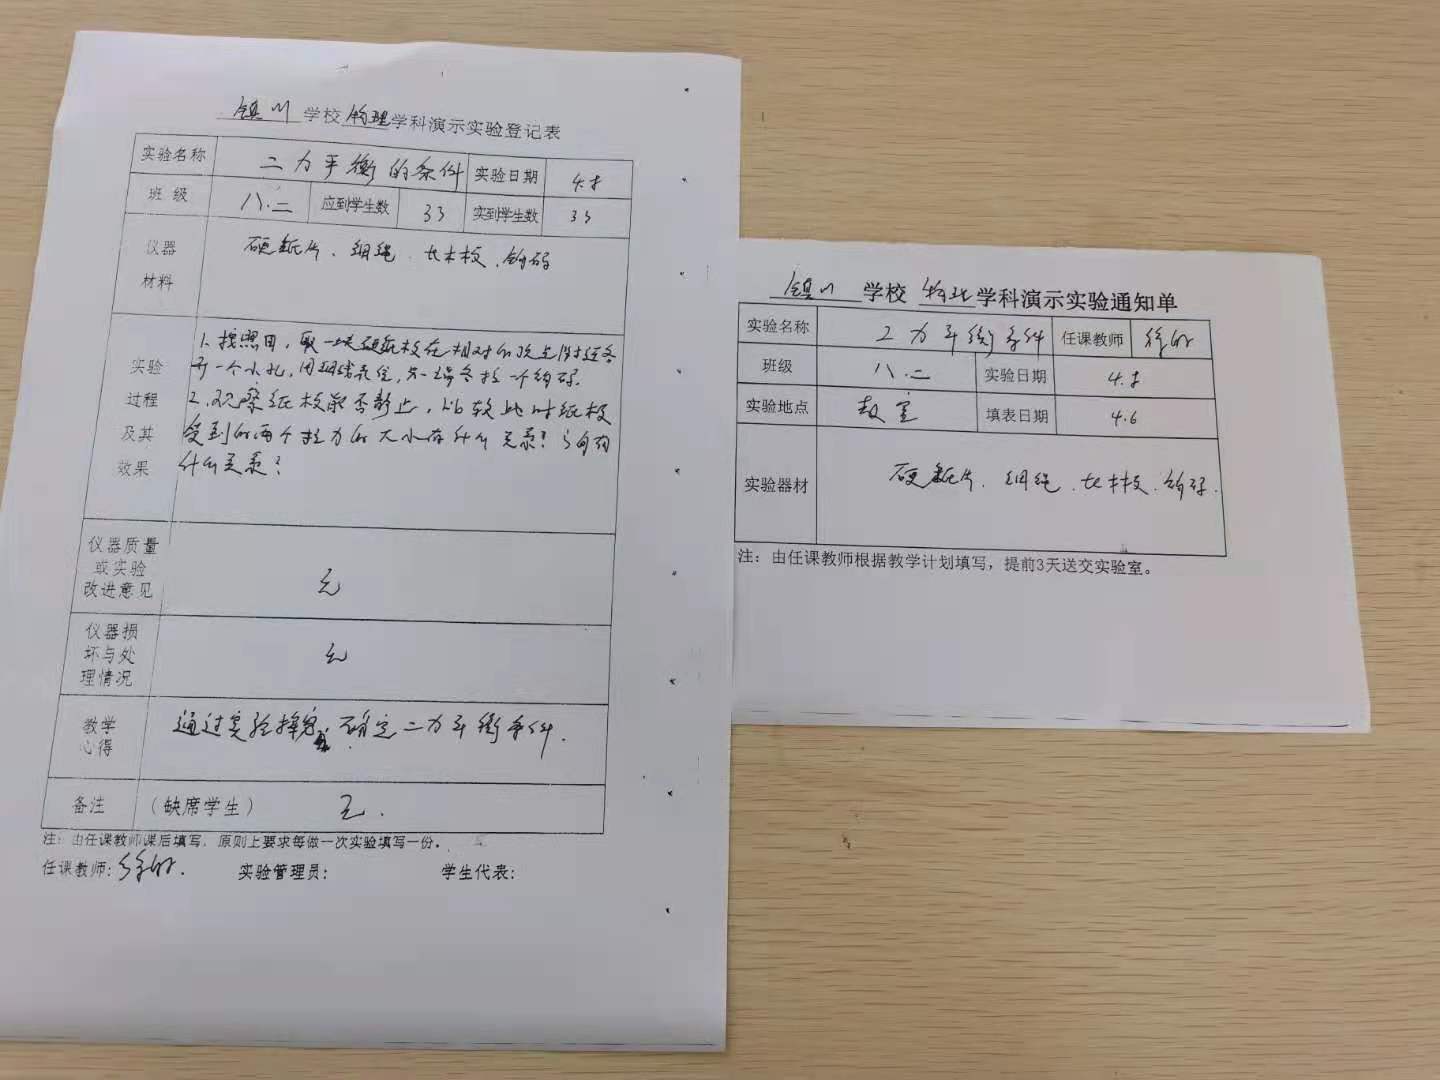 镇川 学校 物理 学科演示实验登记表
实验名称 二力平衡的条件 实验日期 4.8
班 级 八.二 应到学生数 33 实到学生数 33
仪器
材料
硬纸片、细绳、长木板、钩码
实验
过程
及其
效果
1. 按照图,取一块硬纸板在相对的顶点附近各
开一个小孔,用细线系住,另一端各挂一个钩码.
2. 观察纸板能否静止,比较此时纸板
受到的两个拉力的大小有什么关系?方向有
什么关系?
仪器质量
或实验
改进意见
无
仪器损
坏与处
理情况
无
教学
心得
通过实验探究,确定二力平衡条件.
备注 (缺席学生) 无.
注:由任课教师课后填写,原则上要求每做一次实验填写一份。
任课教师: 实验管理员: 学生代表:
镇川 学校 物理 学科演示实验通知单
实验名称 二力平衡条件 任课教师
班级 八.二 实验日期 4.8
实验地点 教室 填表日期 4.6
实验器材 硬纸片、细绳、长木板、钩码.
注:由任课教师根据教学计划填写,提前3天送交实验室。